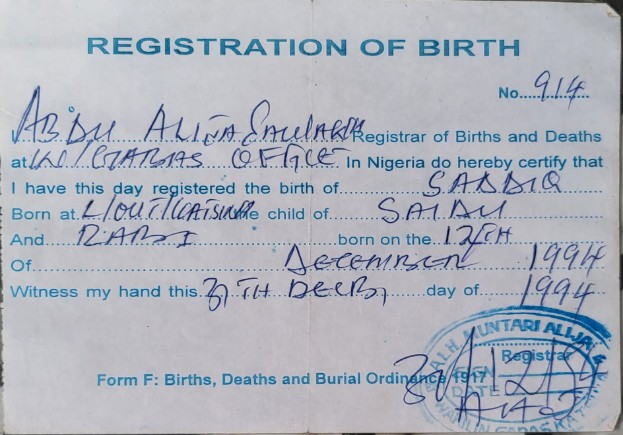 REGISTRATION OF BIRTH
No. 914
I ABDU ALIYA Registrar of Births and Deaths
at OFFICE In Nigeria do hereby certify that
I have this day registered the birth of SADDIQ
Born at L/OUT/KATSINA the child of SAIDU
And RABI born on the 12TH
Of DECEMBER 1994
Witness my hand this day of 1994
ALH MUNTARI ALIJA
Registrar
Form F: Births, Deaths and Burial Ordinance 1917
SIGN
DATE